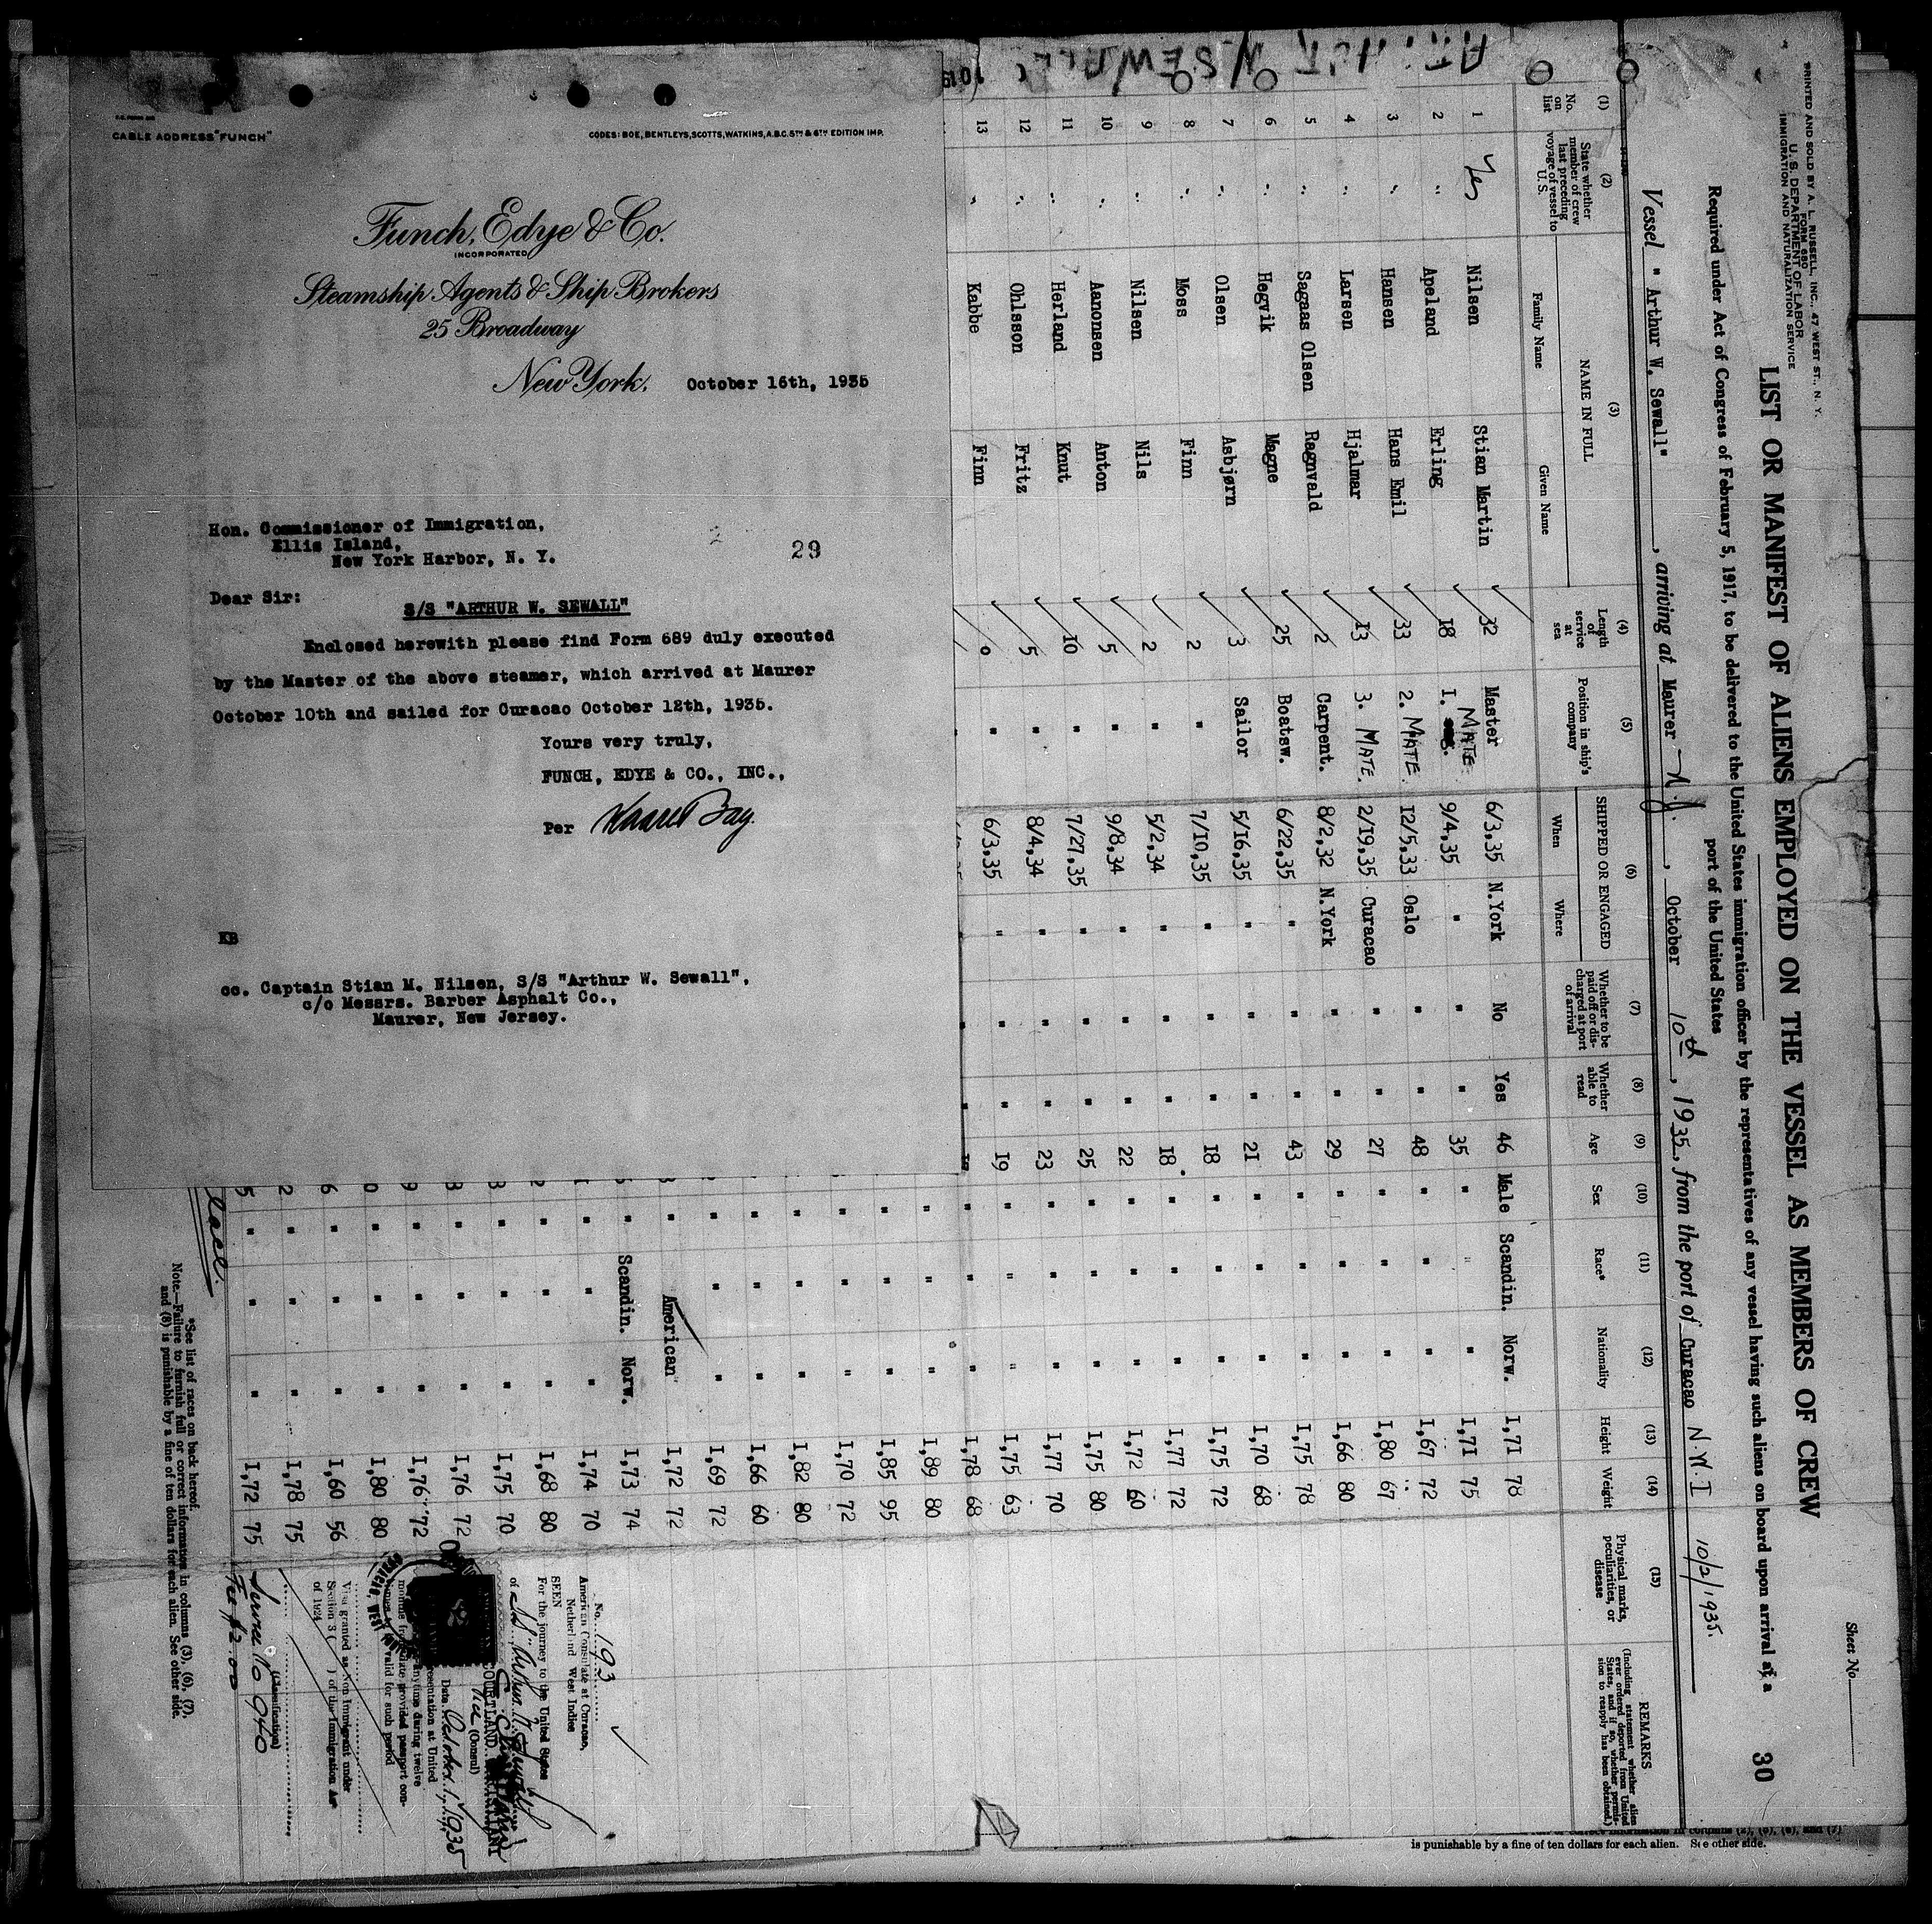 CABLE ADDRESS "FUNCH"
CODES: BOE, BENTLEYS, SCOTTS, WATKINS, A.B.C. 5TH & 6TH EDITION IMP.
Funch, Edye & Co.
INCORPORATED
Steamship Agents & Ship Brokers
25 Broadway
New York, October 16th, 1935
Hon. Commissioner of Immigration,
Ellis Island,
New York Harbor, N. Y.
29
Dear Sir:
S/S "ARTHUR W. SEWALL"
Enclosed herewith please find Form 689 duly executed
by the Master of the above steamer, which arrived at Maurer
October 10th and sailed for Curacao October 12th, 1935.
Yours very truly,
FUNCH, EDYE & CO., INC.,
Per
KB
cc. Captain Stian M. Nilsen, S/S "Arthur W. Sewall",
c/o Messrs. Barber Asphalt Co.,
Maurer, New Jersey.
PRINTED AND SOLD BY A. L. RUSSELL, INC., 47 WEST ST., N. Y.
FORM 680
U. S. DEPARTMENT OF LABOR
IMMIGRATION AND NATURALIZATION SERVICE
Sheet No.
LIST OR MANIFEST OF ALIENS EMPLOYED ON THE VESSEL AS MEMBERS OF CREW
30
Required under Act of Congress of February 5, 1917, to be delivered to the United States immigration officer by the representatives of any vessel having such aliens on board upon arrival at a
port of the United States
Vessel "Arthur W. Sewall", arriving at Maurer N.J., October 10th, 1935, from the port of Curacao N.W.I 10/2/1935.
(1) No. on list
(2) State whether member of crew last preceding voyage of vessel to U. S.
(3) NAME IN FULL Family Name Given Name
(4) Length of service at sea
(5) Position in ship's company
(6) SHIPPED OR ENGAGED When Where
(7) Whether to be paid off or discharged at port of arrival
(8) Whether able to read
(9) Age
(10) Sex
(11) Race*
(12) Nationality
(13) Height
(14) Weight
(15) Physical marks, peculiarities, or disease
REMARKS (Including statement whether alien ever ordered deported from United States, and if so, whether permission to reapply has been obtained.)
1 Yes Nilsen Stian Martin 32 Master 6/3,35 N.York No Yes 46 Male Scandin. Norw. I,71 78
2 " Apeland Erling 18 I. MATE 9/4,35 " " " 35 " " " I,71 75
3 " Hansen Hans Emil 33 2. MATE 12/5,33 Oslo " " 48 " " " I,67 72
4 " Larsen Hjalmar 13 3. MATE 2/19,35 Curacao " " 27 " " " I,80 67
5 " Sagaas Olsen Ragnvald 2 Carpent. 8/2,32 N.York " " 29 " " " I,66 80
6 " Hegvik Magne 25 Boatsw. 6/22,35 " " " 43 " " " I,75 78
7 " Olsen Asbjørn 3 Sailor 5/16,35 " " " 21 " " " I,70 68
8 " Moss Finn 2 " 7/10,35 " " " 18 " " " I,75 72
9 " Nilsen Nils 2 " 5/2,34 " " " 18 " " " I,77 72
10 " Aanonsen Anton 5 " 9/8,34 " " " 22 " " " I,72 60
11 " Herland Knut 10 " 7/27,35 " " " 25 " " " I,75 80
12 " Ohlsson Fritz 5 " 8/4,34 " " " 23 " " " I,77 70
13 " Kabbe Finn 0 " 6/3,35 " " " 19 " " " I,75 63
" " " I,78 68
" " " I,89 80
" " " I,85 95
" " " I,70 72
" " " I,82 80
" " " I,66 60
" " " I,69 72
" American I,72 72
" Scandin. Norw. I,73 74
" " " I,74 70
" " " I,68 80
" " " I,75 70
" " " I,76 72
" " " I,76 72
" " " I,80 80
" " " I,60 56
" " " I,78 75
" " " I,72 75
No. 193
American Consulate at Curacao,
Netherland West Indies
SEEN
For the journey to the United States
of
(Consul)
Date October 1, 1935
Visa granted as Non Immigrant under
Section 3 ( ) of the Immigration Act
of 1924
(Classification)
Service No 940
Fee $2.00
*See list of races on back hereof.
Note.—Failure to furnish full or correct information in columns (3), (6), (7),
and (8) is punishable by a fine of ten dollars for each alien. See other side.
is punishable by a fine of ten dollars for each alien. See other side.